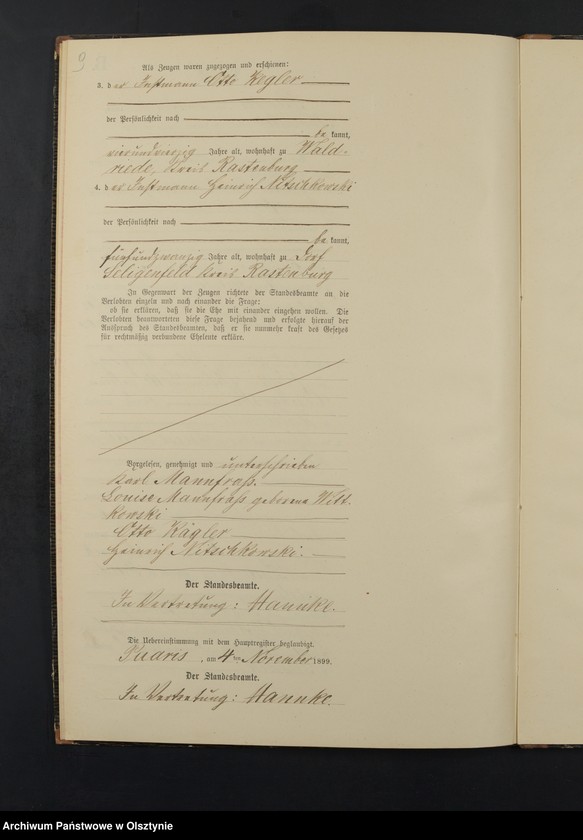 9
Als Zeugen waren zugezogen und erschienen:
3. der Instmann Otto Kegler
der Persönlichkeit nach
bekannt,
vierundzwanzig Jahre alt, wohnhaft zu Wald-
riede, Kreis Rastenburg
4. der Instmann Heinrich Nitschkowski
der Persönlichkeit nach
bekannt,
fünfundzwanzig Jahre alt, wohnhaft zu Dorf
Seligenfeld Kreis Rastenburg
In Gegenwart der Zeugen richtete der Standesbeamte an die
Verlobten einzeln und nach einander die Frage:
ob sie erklären, daß sie die Ehe mit einander eingehen wollen. Die
Verlobten beantworteten diese Frage bejahend und erfolgte hierauf der
Ausspruch des Standesbeamten, daß er sie nunmehr kraft des Gesetzes
für rechtmäßig verbundene Eheleute erkläre.
Vorgelesen, genehmigt und unterschrieben
Karl Mannfraß.
Louise Mannfraß geborene Witt-
kowski
Otto Kägler
Heinrich Nitschkowski.
Der Standesbeamte.
In Vertretung: Hannke.
Die Uebereinstimmung mit dem Hauptregister beglaubigt.
Paaris, am 4ten November 1899.
Der Standesbeamte.
In Vertretung: Hannke.
Archiwum Państwowe w Olsztynie